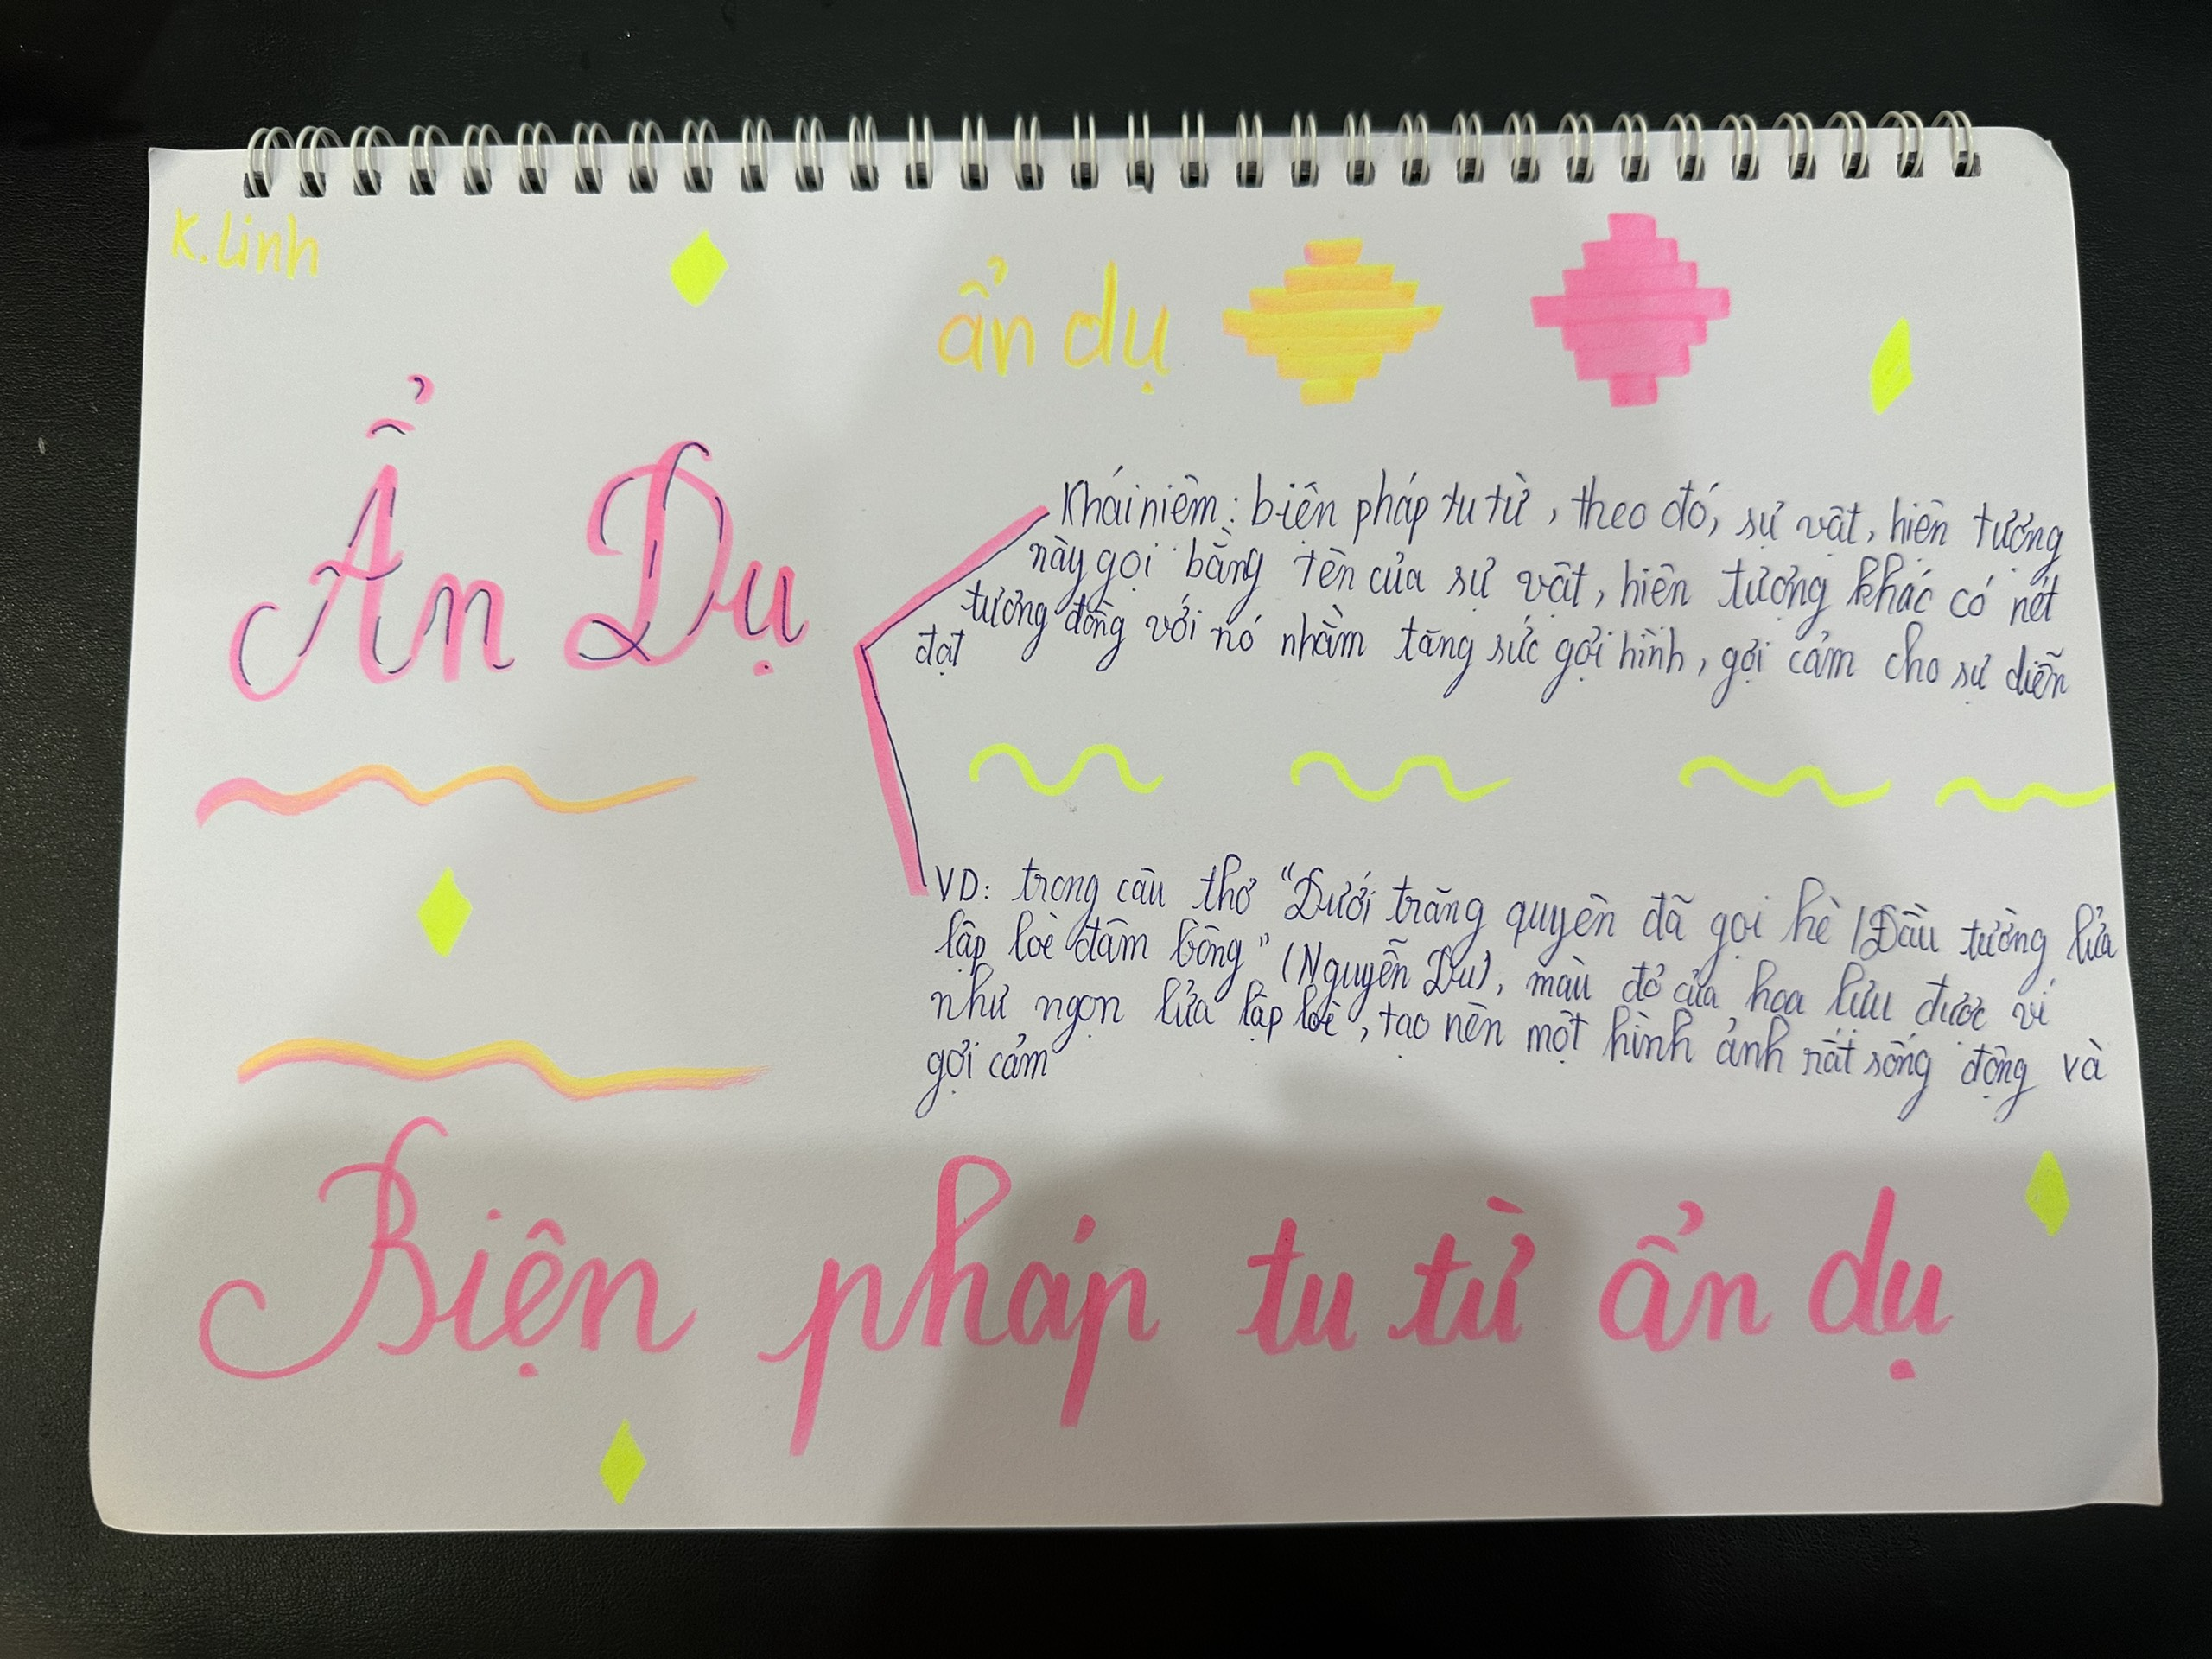 K.linh
ẩn dụ
Ẩn Dụ
Khái niệm: biện pháp tu từ, theo đó, sự vật, hiện tượng
này gọi bằng tên của sự vật, hiện tượng khác có nét
tương đồng với nó nhằm tăng sức gợi hình, gợi cảm cho sự diễn
đạt
VD: trong câu thơ "Dưới trăng quyên đã gọi hè / Đầu tường lửa
lập loè đâm bông" (Nguyễn Du), màu đỏ của hoa lựu được ví
như ngọn lửa lập loè, tạo nên một hình ảnh rất sống động và
gợi cảm
Biện pháp tu từ ẩn dụ